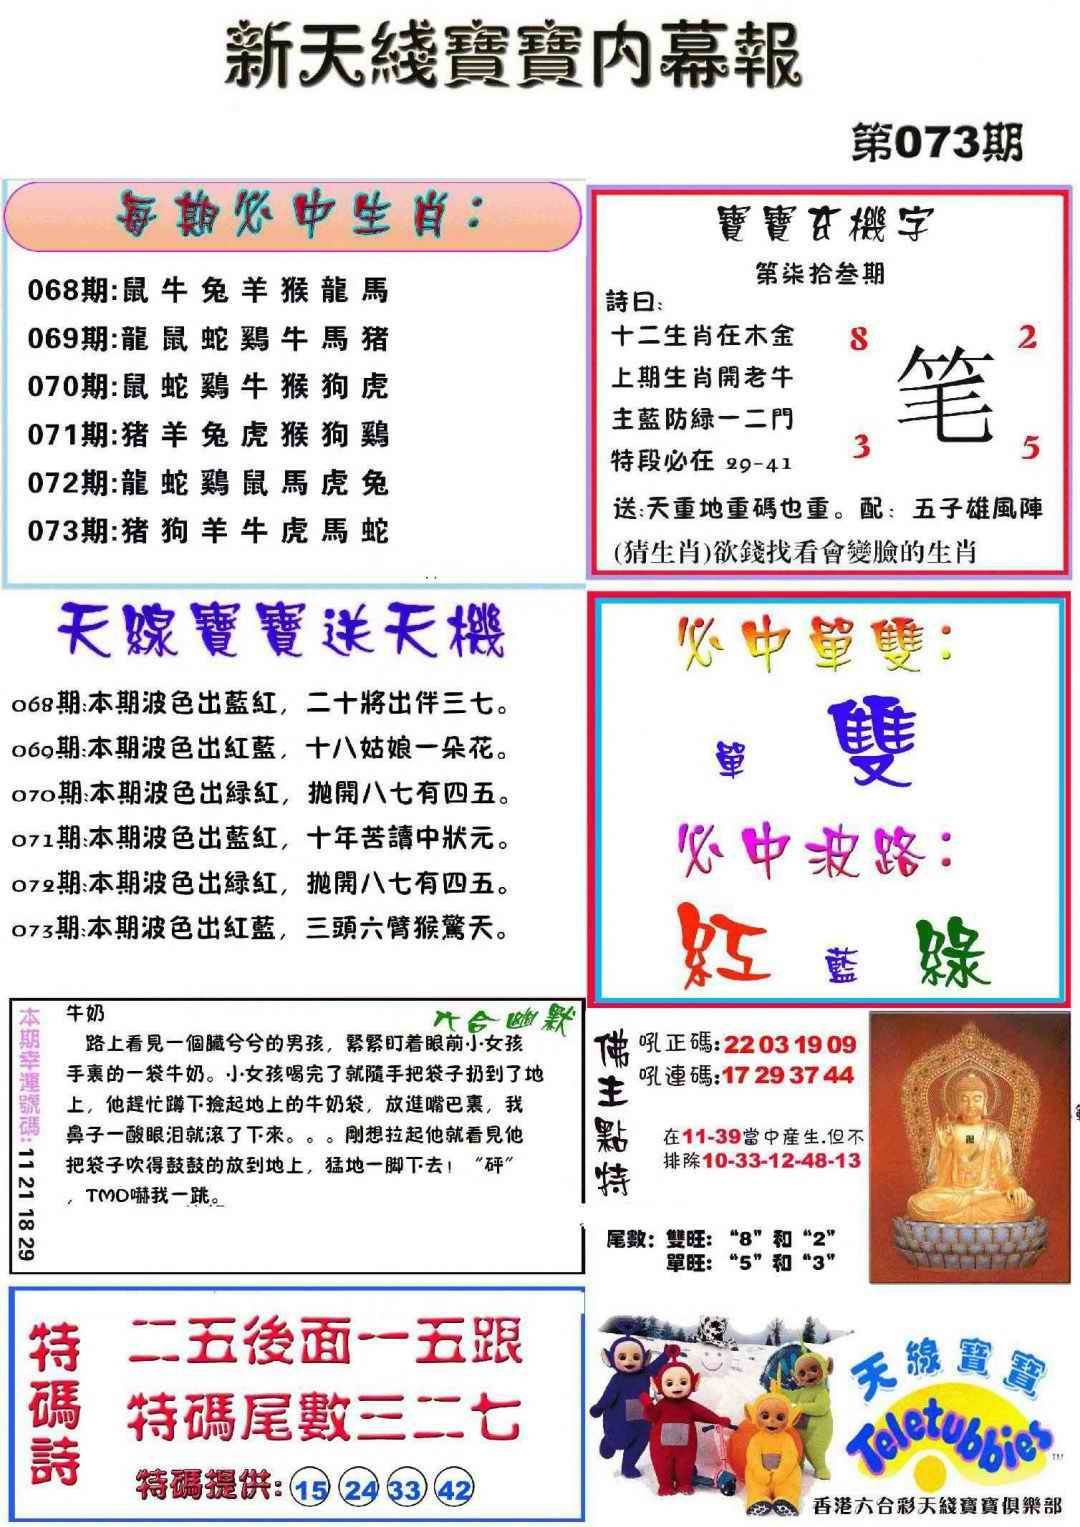 新天綫寶寶内幕報
第073期
每期必中生肖：
068期:鼠 牛 兔 羊 猴 龍 馬
069期:龍 鼠 蛇 鷄 牛 馬 猪
070期:鼠 蛇 鷄 牛 猴 狗 虎
071期:猪 羊 兔 虎 猴 狗 鷄
072期:龍 蛇 鷄 鼠 馬 虎 兔
073期:猪 狗 羊 牛 虎 馬 蛇
寶寶玄機字
第柒拾叁期
詩曰:
十二生肖在木金
上期生肖開老牛
主藍防緑一二門
特段必在 29-41
8 2
笔
3 5
送:天重地重碼也重。配：五子雄風陣
(猜生肖)欲錢找看會變臉的生肖
天線寶寶送天機
068期:本期波色出藍紅，二十將出伴三七。
069期:本期波色出紅藍，十八姑娘一朵花。
070期:本期波色出緑紅，抛開八七有四五。
071期:本期波色出藍紅，十年苦讀中狀元。
072期:本期波色出緑紅，抛開八七有四五。
073期:本期波色出紅藍，三頭六臂猴驚天。
必中單雙：
單 雙
必中波路：
紅 藍 綠
本期幸運號碼:11 21 18 29
六合幽默
牛奶
路上看見一個臟兮兮的男孩，緊緊盯着眼前小女孩
手裏的一袋牛奶。小女孩喝完了就隨手把袋子扔到了地
上，他趕忙蹲下撿起地上的牛奶袋，放進嘴巴裏，我
鼻子一酸眼泪就滚了下來。。。剛想拉起他就看見他
把袋子吹得鼓鼓的放到地上，猛地一脚下去！“砰”
，TMD嚇我一跳。
佛主點特
吼正碼:22 03 19 09
吼連碼:17 29 37 44
在11-39當中産生.但不
排除10-33-12-48-13
尾數：雙旺：“8”和“2”
單旺：“5”和“3”
特碼詩
二五後面一五跟
特碼尾數三二七
特碼提供: 15 24 33 42
天線寶寶
Teletubbies
TM
香港六合彩天綫寶寶俱樂部